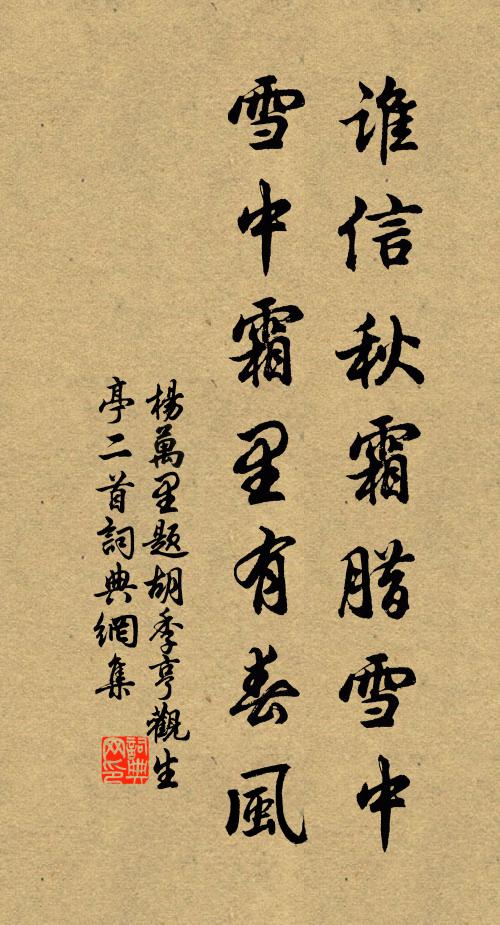 谁信秋霜腊雪中
雪中霜里有春風
楊萬里題胡季亨觀生
亭二首詞典網集
詞典
网印